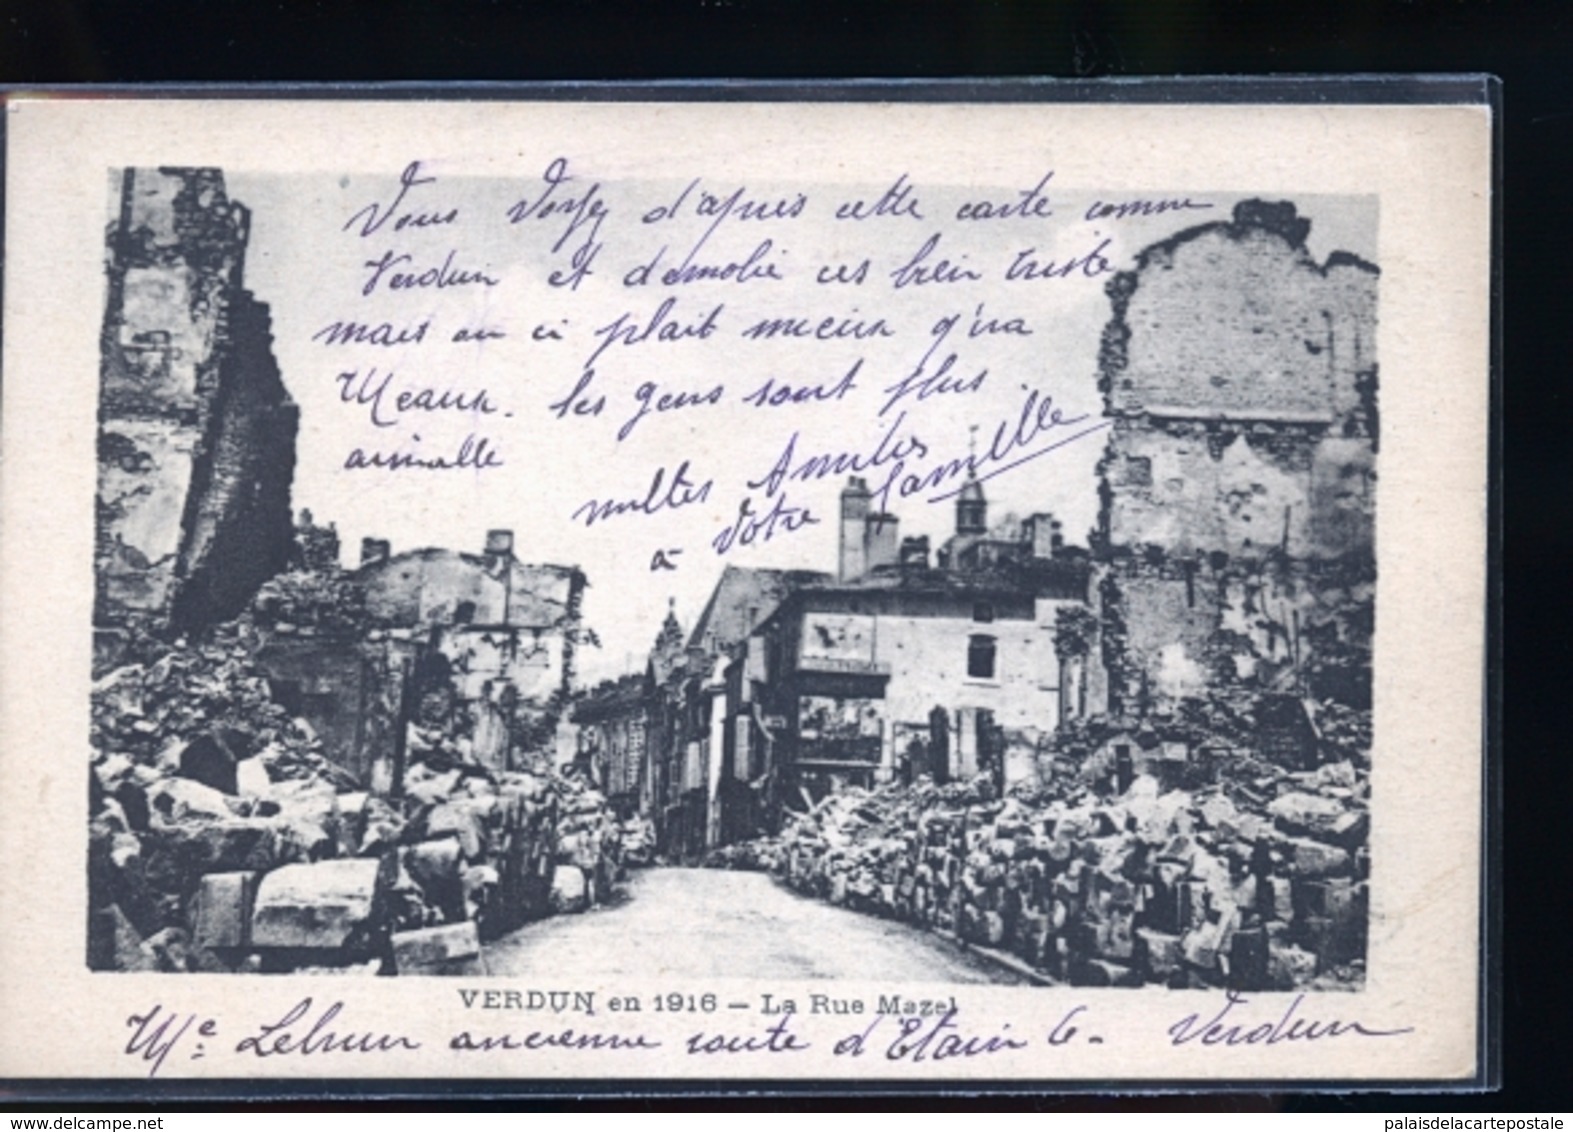 Vous Voyez d'après cette carte comme
Verdun et demolie ces bien triste
mais on ci plait mieux q'ua
Meaux. les gens sont plus
aimalle
milles Amitiés
à votre famille
VERDUN en 1916 – La Rue Mazel
Me Lebrun ancienne route d'Etain 6- Verdun
palaisdelacartepostale